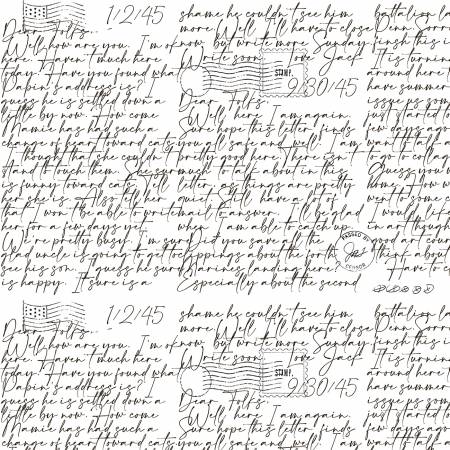 1/2/45
Dear Folks.
Well, how are you. I'm ok
here. Haven't much here
today. Have you found what
address is? I
guess he is settled down a
little by now. How come
Mamie has had such a
change of heart toward cats
I thought that she couldn't
And to touch them. She sure
is funny toward cats. I'll
bet she is. Also tell her
that I won't be able to write
her for a few days yet.
We're pretty busy. I'm sure
glad uncle is going to get to
see his son. I guess he sure
is happy. It sure is a
shame he couldn't see him
more. Well I'll have to close
now, but write more Sunday.
Write soon Love Jack
STAMP
9/30/45
Dear Folks.
Well, here I am again.
Sure hope this letter finds
you all safe and well! I am
pretty good here. There isn't
much to talk about in this
letter, as things are pretty
quiet. Still have a lot of
mail to answer. I'll be glad
when I am able to catch up.
Did you save all the
clippings about the forth
Marines landing here?
Especially about the second
PASSED BY
CENSOR
battallion la
finish this
It is turnin
around here t
have summer
issue us som
just started to
few days ago
want to talk a
to go to colleg
Guess you
home. How w
some
I would like
in art though
good art cour
think about
Have to c
1/2/45
Dear Folks.
Well, how are you. I'm ok
here. Haven't much here
today. Have you found what
address is? I
guess he is settled down a
little by now. How come
Mamie has had such a
change of heart toward cats
shame he couldn't see him
more. Well I'll have to close
now, but write more Sunday.
Write soon Love Jack
STAMP
9/30/45
Dear Folks.
Well, here I am again.
Sure hope this letter finds
you all safe and well! I am
battallion la
finish this
It is turnin
around here t
have summer
issue us som
just started to
few days ago
want to talk a